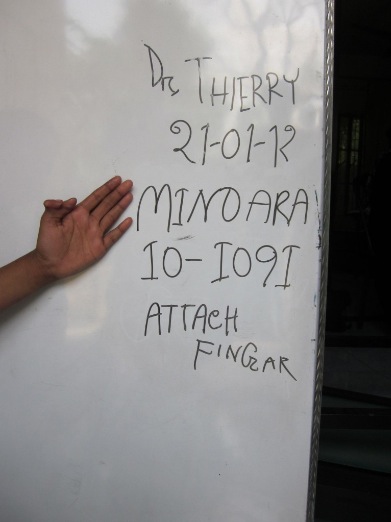 Dr, THIERRY
21-01-12
MINOARA
10-1091
ATTACH
FINGAR